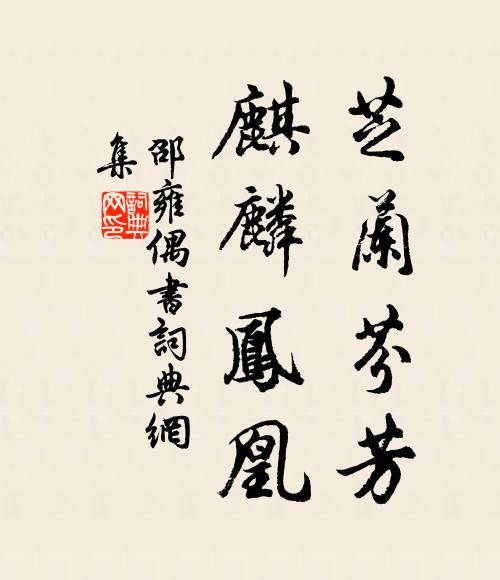 芝蘭芬芳
麒麟鳳凰
邵雍偶書詞典網
集
詞典
网印